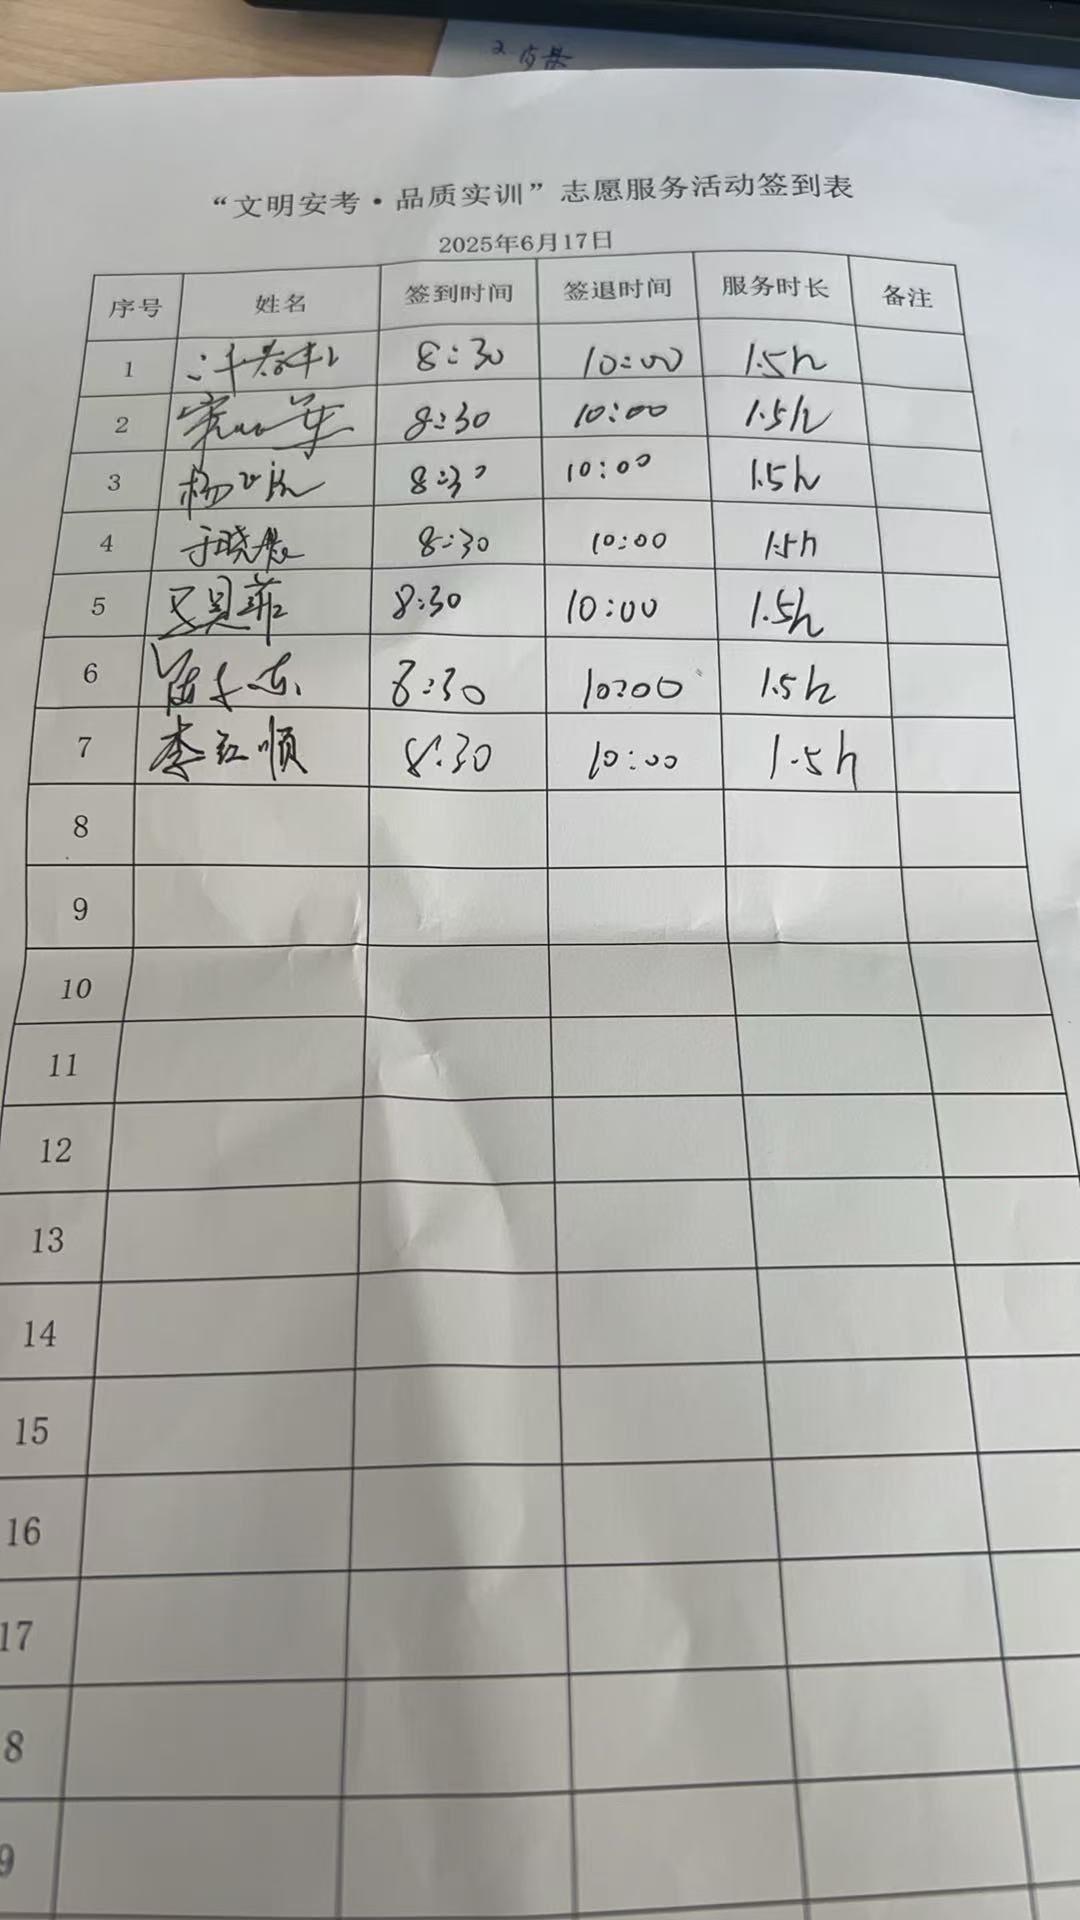 “文明安考·品质实训”志愿服务活动签到表
2025年6月17日
序号 姓名 签到时间 签退时间 服务时长 备注
1 8:30 10:00 1.5h
2 8:30 10:00 1.5h
3 杨 8:30 10:00 1.5h
4 于晓 8:30 10:00 1.5h
5 8:30 10:00 1.5h
6 8:30 10:00 1.5h
7 李红顺 8:30 10:00 1.5h
8
9
10
11
12
13
14
15
16
17
8
9